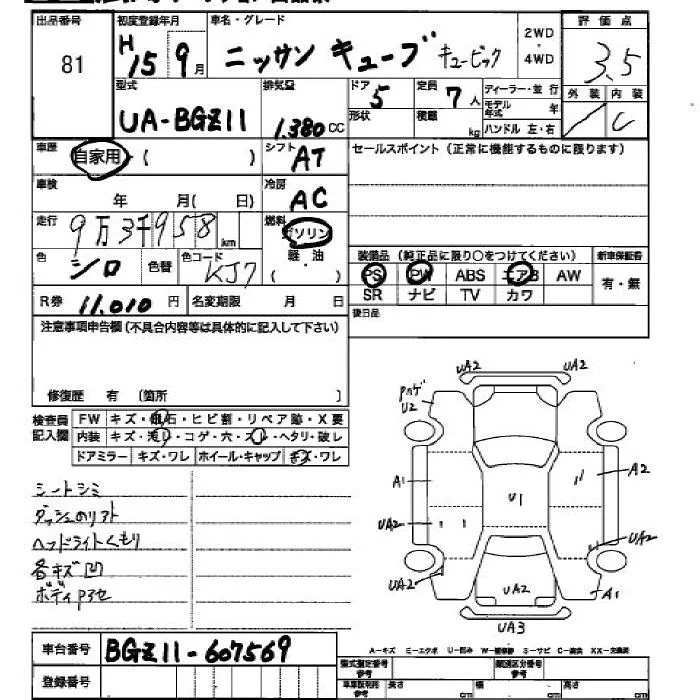 出品番号 初度登録年月 車名・グレード 2WD・4WD 評価点
81 H15 9月 ニッサン キューブ キュービック 3.5
型式 排気量 ドア 5 定員 7人 ディーラー・並行 外装 内装
UA-BGZ11 1.380 CC 形状 積載 kg モデル年式 年 C
ハンドル 左・右
車歴 自家用 ( ) シフト AT セールスポイント (正常に機能するものに限ります)
車検 年 月 ( 日) 冷房 AC
走行 9万3千958 km 燃料 ガソリン
軽・油
色 シロ 色替 色コード KJ7 ( )
装備品 (純正品に限り○をつけてください) 新車保証書
PS PW ABS エアB AW 有・無
SR ナビ TV カワ
R券 11.010 円 名変期限 月 日 後日品
注意事項申告欄 (不具合内容等は具体的に記入して下さい)
修復歴 有 (箇所 )
検査員記入欄 FW キズ・飛石・ヒビ割・リペア跡・X要
内装 キズ・汚レ・コゲ・穴・スレ・ヘタリ・破レ
ドアミラー キズ・ワレ ホイール・キャップ キズ・ワレ
シートシミ
ダッシュのリアト
ヘッドライトくもり
各キズ凹
ボディPアセ
UA2 UA2
Pハゲ
U2
A1 A2
U1
UA2 UA2
UA2 UA2 A1
UA3
車台番号 BGZ11-607569
登録番号
A−キズ E−エクボ U−凹み W−補修跡 S−サビ C−腐食 XX−交換済
型式指定番号 参考 類別区分番号 参考
車庫証明用 参考 長さ cm 幅 cm 高さ cm